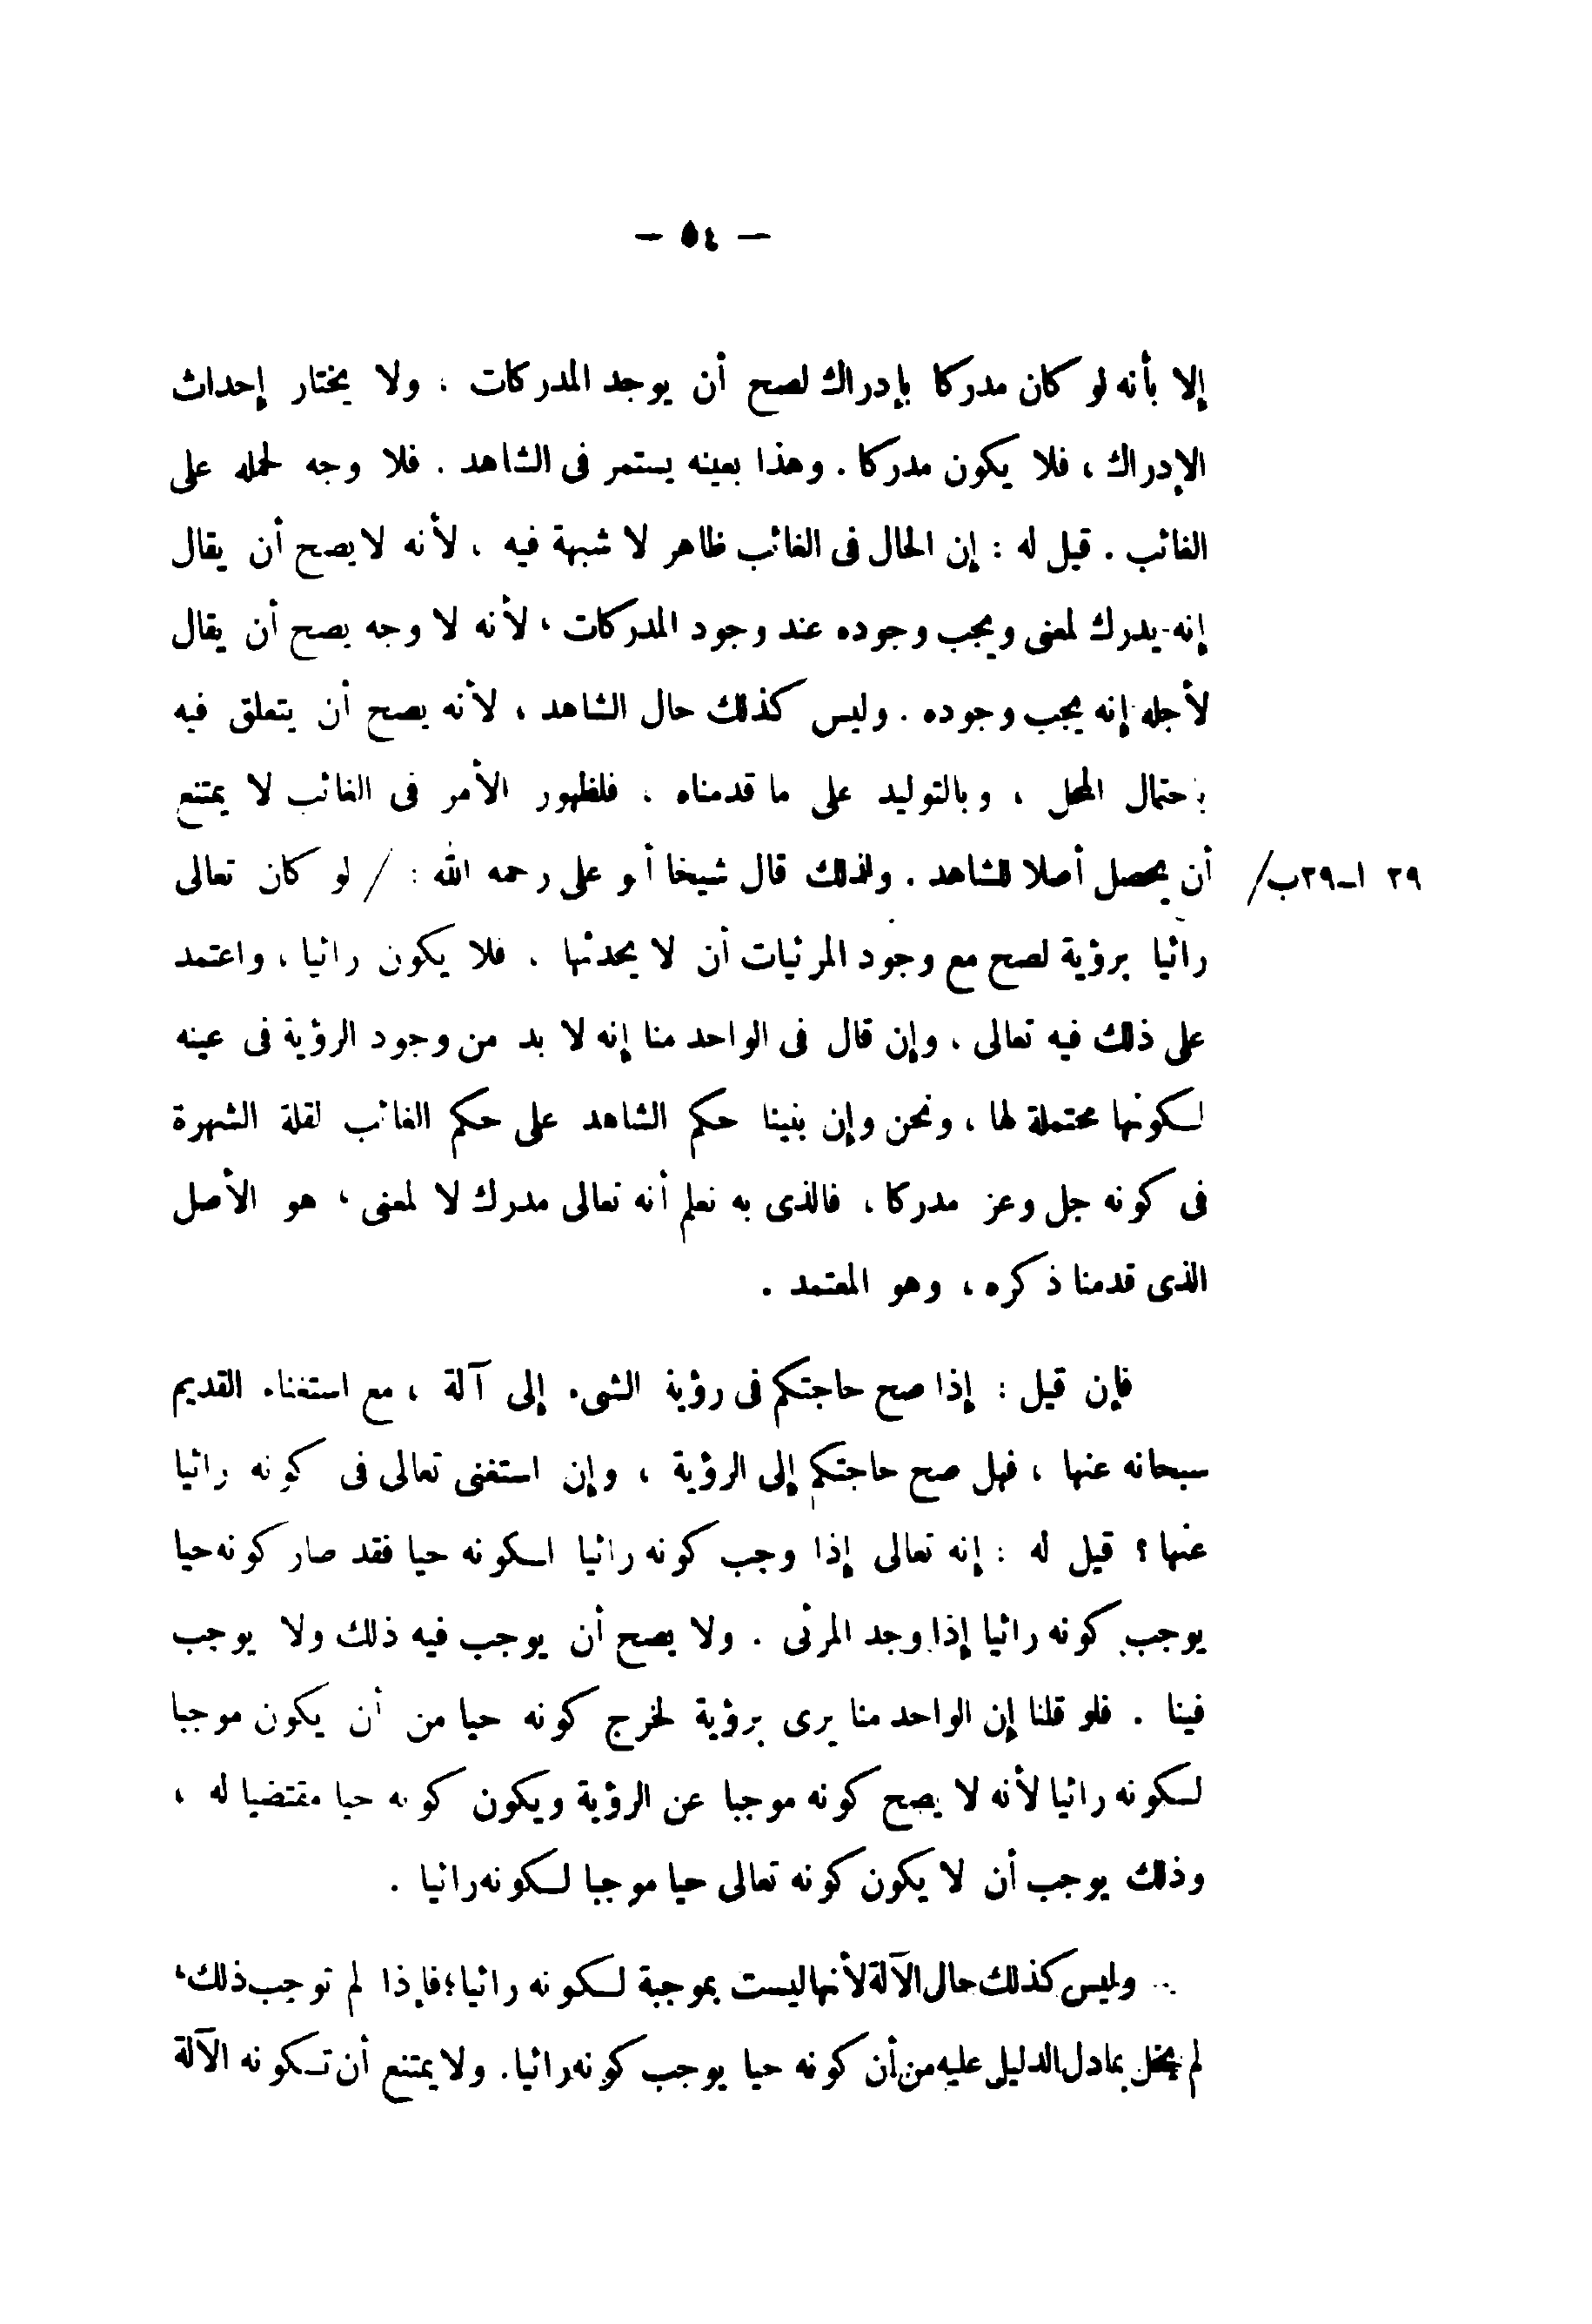 — ٥٤ —
إلا بأنه لو كان مدركا بإدراك لصح أن يوجد المدركات ، ولا يختار إحداث
الإدراك ، فلا يكون مدركا . وهذا بعينه يستمر فى الشاهد . فلا وجه لحمله على
الغائب . قيل له : إن الحال فى الغائب ظاهر لا شبهة فيه ، لأنه لا يصح أن يقال
إنه يدرك لمعنى ويجب وجوده عند وجود المدركات ، لأنه لا وجه يصح أن يقال
لأجله إنه يجب وجوده . وليس كذلك حال الشاهد ، لأنه يصح أن يتعلق فيه
باحتمال المحل ، وبالتوليد على ما قدمناه . فلظهور الأمر فى الغائب لا يمتنع
٢٩ ا-٢٩ب/ أن يحصل أصلا للشاهد . ولذلك قال شيخنا أبو على رحمه الله : / لو كان تعالى
رائيا برؤية لصح مع وجود المرئيات أن لا يحدثها . فلا يكون رائيا ، واعتمد
على ذلك فيه تعالى . وإن قال فى الواحد منا إنه لا بد من وجود الرؤية فى عينه
لكونها محتملة لها ، ونحن وإن بنينا حكم الشاهد على حكم الغائب لقلة الشهرة
فى كونه جل وعز مدركا ، فالذى به نعلم أنه تعالى مدرك لا لمعنى ، هو الأصل
الذى قدمنا ذكره ، وهو المعتمد .
فإن قيل : إذا صح حاجتكم فى رؤية الشىء إلى آلة ، مع استغناء القديم
سبحانه عنها ، فهل صح حاجتكم إلى الرؤية ، وإن استغنى تعالى فى كونه رائيا
عنها ؟ قيل له : إنه تعالى إذا وجب كونه رائيا لكونه حيا فقد صار كونه حيا
يوجب كونه رائيا إذا وجد المرئى . ولا يصح أن يوجب فيه ذلك ولا يوجب
فينا . فلو قلنا إن الواحد منا يرى برؤية لخرج كونه حيا من أن يكون موجبا
لكونه رائيا لأنه لا يصح كونه موجبا عن الرؤية ويكون كونه حيا مقتضيا له ،
وذلك يوجب أن لا يكون كونه تعالى حيا موجبا لكونه رائيا .
وليس كذلك حال الآلة لأنها ليست بموجبة لكونه رائيا ؛ فإذا لم توجب ذلك ،
لم يخل بما دل الدليل عليه من أن كونه حيا يوجب كونه رائيا . ولا يمتنع أن تكونه الآلة